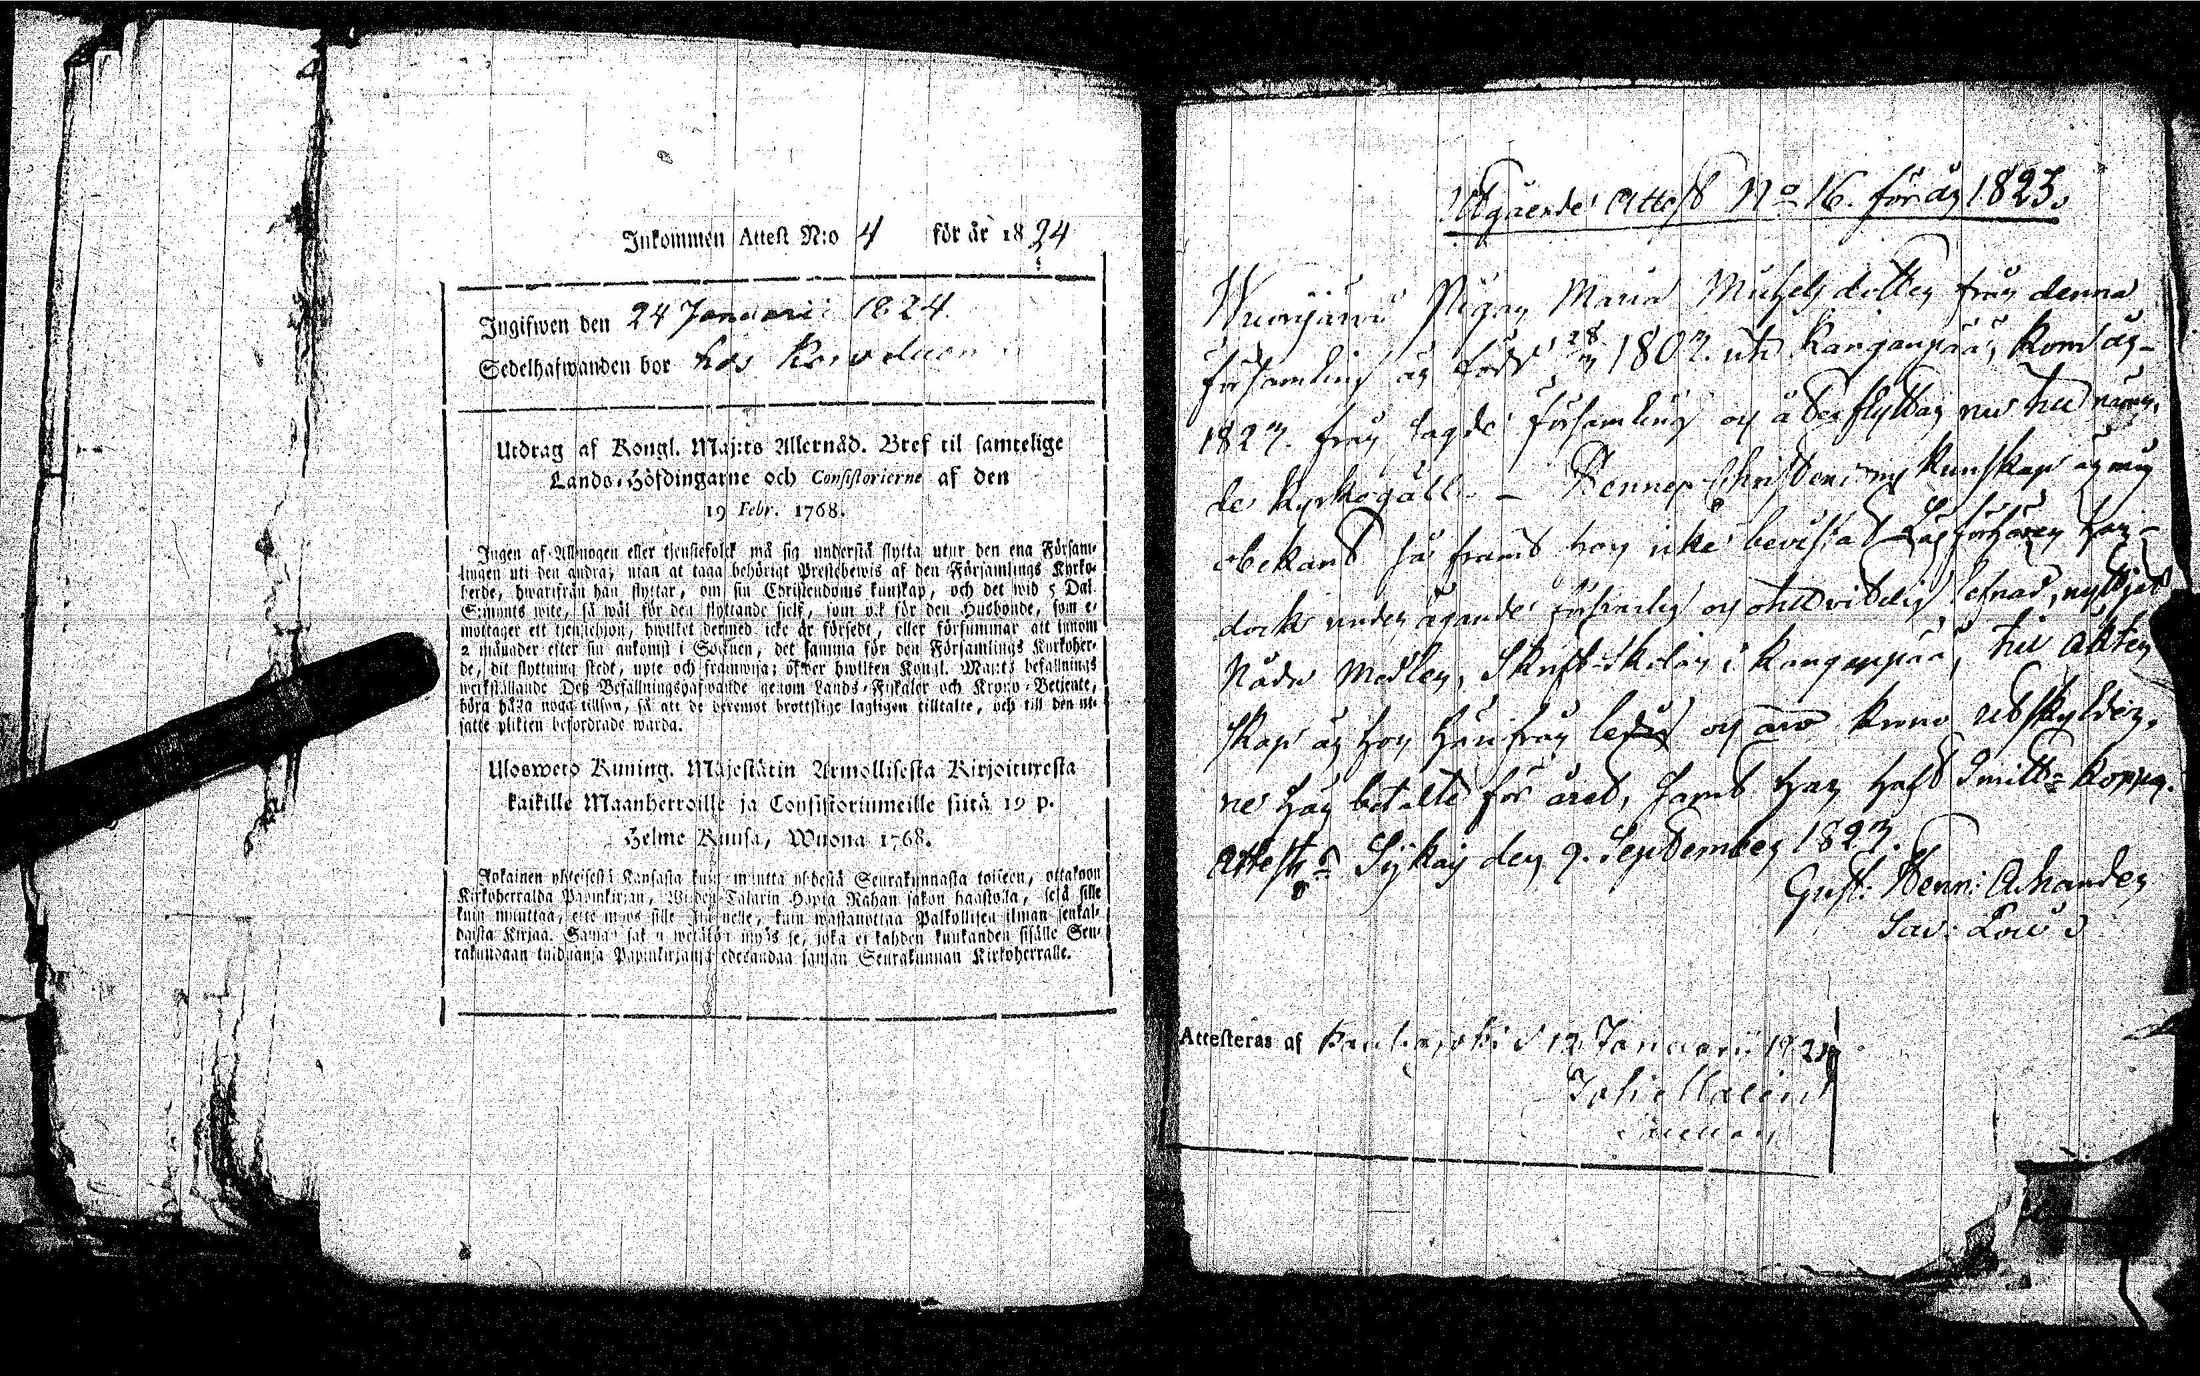 Inkommen Attest N:o 4 för år 1824
Ingifwen den 24 Januari 1824.
Sedelhafwanden bor hos
Utdrag af Kongl. Maj:ts Allernåd. Bref til samtelige
Lands-Höfdingarne och Consistorierne af den
19 Febr. 1768.
Ingen af Allmogen eller tjenstefolck må sig understå flytta utur den ena Försam-
lingen uti den andra, utan at taga behörigt Prestebewis af den Församlings Kyrko-
herde, hwarifrån han flyttar, om sin Christendoms kunskap, och det wid 5 Dal.
S:mynts wite, så wäl för den flyttande sielf, som ock för den Husbonde, som e-
mottager ett tjenstehjon, hwilket dermed icke är försedt, eller försummar att innom
2 månader efter sin ankomst i Socknen, det samma för den Församlings Kyrkoher-
de, dit flyttning skedt, upte och framwisa; öfwer hwilken Kongl. Maj:ts befallnings
werkställande Deß Befallningshafwande genom Lands-Fiskaler och Krono-Betjente,
böra hålla noga tillsyn, så att de deremot brottslige lagligen tilltalte, och till den ut-
satte plikten befordrade warda.
Ulosweto Kuning. Majestätin Armollisesta Kirjoituresta
kaikille Maanherroille ja Consistoriumeille siitä 19 p.
Helme Kuusa, Wuona 1768.
Jokainen yhteisestä Kansasta kuin muutta yhdestä Seurakunnasta toiseen, ottakoon
Kirkoherralda Papinkirjan, Wiiden Talarin Hopia Rahan sakon haastolla, sekä sille
kuin muuttaa, että myös sille Isännelle, kuin wastanottaa Palkollisen ilman senkal-
daista Kirjaa. Saman sakon wetäkön myös se, joka ei kahden kuukauden sisälle Seu-
rakundaan tulduansa Papinkirjansa edesandaa saman Seurakunnan Kirkoherralle.
Utgående Attest No 16. för år 1823.
Pigan Maria Michelsdotter från denna
församling är född 28/3 1803. uti Kanganpää, kom år
1823. från sagde församling och återflyttar nu till nämn-
de Kyrkogäll. – Hennes Christendoms kunskap är mig
obekant så framt hon icke bevistat Läsförhören har
dock under ägande försvarlig och
Nåde Medlen, Skriftskolan i Kanganpää, till Äkten-
skap är hon härifrån ledig och
ne har betalte för året, samt har haft Smitt-koppor.
Attest. den 9. September 1823.
Gust: Henr:
Attesteras af 12 Januari 1824